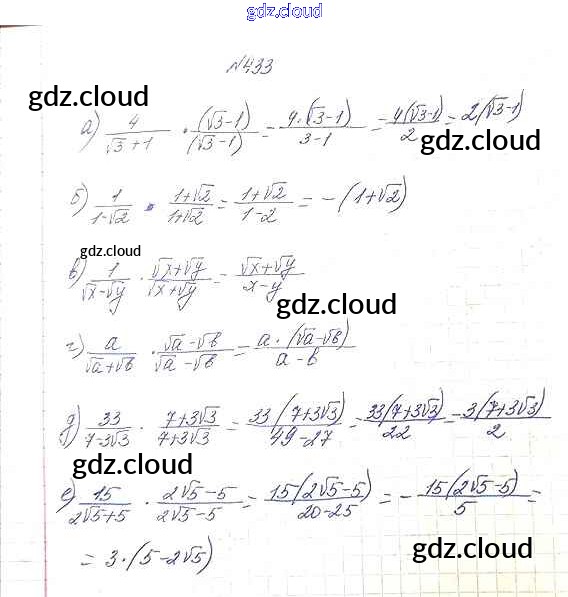 gdz.cloud
№433
gdz.cloud
а) 4/(√3+1) · (√3-1)/(√3-1) = 4·(√3-1)/(3-1) = 4(√3-1)/2 = 2(√3-1)
gdz.cloud
б) 1/(1-√2) · (1+√2)/(1+√2) = (1+√2)/(1-2) = -(1+√2)
gdz.cloud
в) 1/(√x-√y) · (√x+√y)/(√x+√y) = (√x+√y)/(x-y)
gdz.cloud
г) a/(√a+√b) · (√a-√b)/(√a-√b) = a·(√a-√b)/(a-b)
д) 33/(7-3√3) · (7+3√3)/(7+3√3) = 33(7+3√3)/(49-27) = 33(7+3√3)/22 = 3(7+3√3)/2
gdz.cloud
е) 15/(2√5+5) · (2√5-5)/(2√5-5) = 15(2√5-5)/(20-25) = -15(2√5-5)/5 =
= 3·(5-2√5)
gdz.cloud